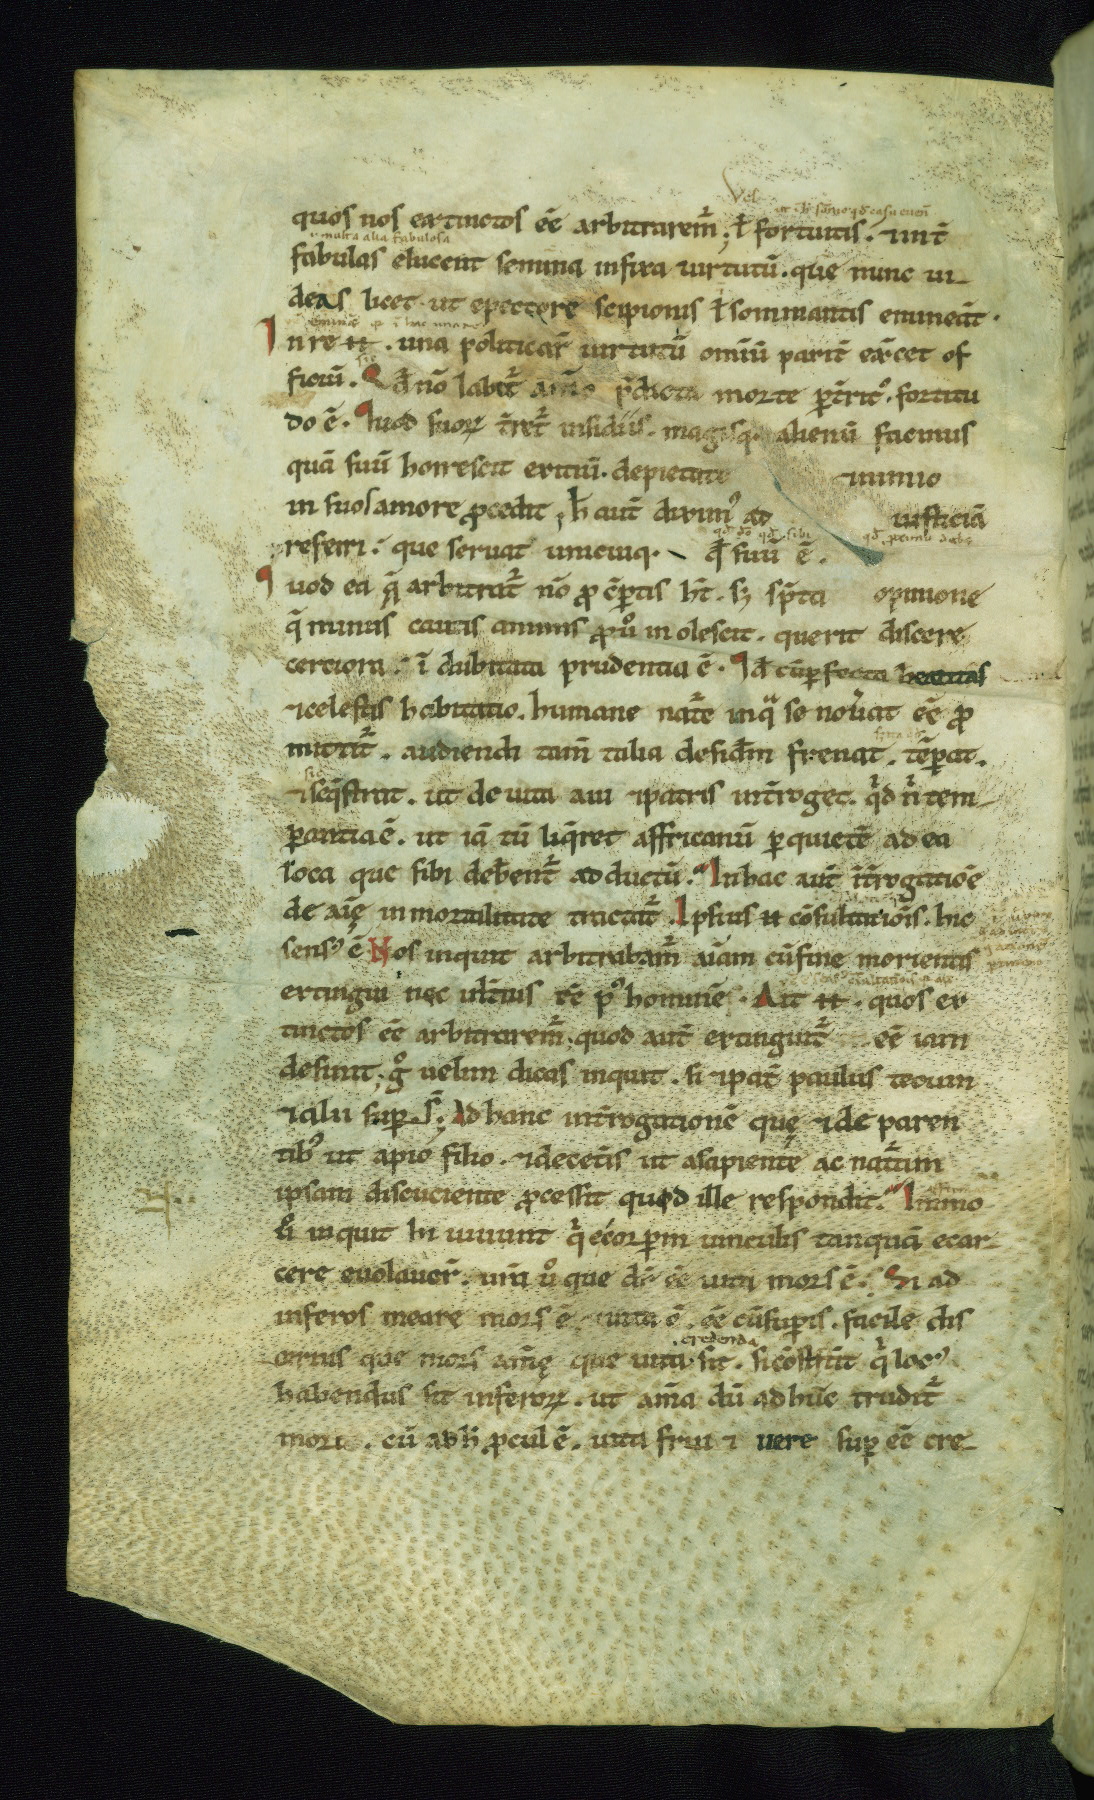 quos nos extinctos eē arbitraremr̄; ł fortuitis. ⁊ int̄
u multa alia fabulosa
fabulas elucent semina infixa uirtutū. que nunc ui-
deas licet. ut epectore scipionis ł somniantis emineāt.
In re ħ. una politicar̄ uirtutū omīū parit̄ exc̄et of
ficiū. Qđ nō labit̄ animo p̄dicta morte pt̄rit᷒. fortitu
do ē. Quod suoꝝ t̄ret̄ insidiis. magisq alienū facinus
quā suū horrescit exitiū. depietate ⁊nimio
in suos amore ꝓcedit; h̄ aut̄ dixim᷒ ad iusticiā
referri. que seruat unicuiq. qđ suū ē.
Quod ea q̄ arbitrat̄ nō ꝓ cēptis ht̄. sꝫ sp̄ta opinione
q̄ minus cautis animis ꝓ uͦ inolescit. querit discere
certiora. ī dubitata prudentia ē. Qđ cū ꝑfecta beatitas
⁊celestis habitatio. humane nat̄e inq̄ se nou̓at eē ꝓ
mittit̄. audiendi tam̄ talia desid̄m frenat. tēꝑat.
⁊seq̄strat. ut de uita aui ⁊patris int̄roget. qͥd nͥ tem-
ꝑantia ē. ut iā tū liq̄ret affricanū ꝑ quietē ad ea
loca que sibi deb̄ent̄ ad ductū. In hac aut̄ īt̄rogatiōe
de aīę inmortalitate tractat̄. Ipsius ħ cōsultatiōis. hic
sens᷒ ē Nos inquit arbitrabam̄ aīam cū fine morientis
extingui nec ult̄ius eē p᷒ hominē. Ait ħ. quos ex
tinctos eē arbitrarem̄; quod aut̄ extinguit̄ eē iam
desinit; gͦ uelim dicas inquit. si ⁊pat̄ paulus tecum
⁊alii suꝑ s̄; Ad hanc int̄rogationē quę ⁊de paren
tib᷒ ut apio filio. ⁊decet̄is ut asapiente ac nat̄am
ipsam discuciente ꝓcessit quod ille respondit. Immo
uͦ inquit hi uiuunt qͥ eēorꝑm uinculis tanquā ecar-
cere euolauer̄. ur̄a uͦ que dr̄ eē uita mors ē. Si ad
inferos meare mors ē ⁊uita ē. eē cū suꝑis. facile dis
credenda
cernis que mors aīmę que uita sit. si cōstit̄it qͥ loc᷒
habendus sit inferoꝝ. ut aīma dū ad hūc trudit̄
mori. cū ab h̄ ꝓcul ē. uita frui ⁊ uere suꝑ eē cre-